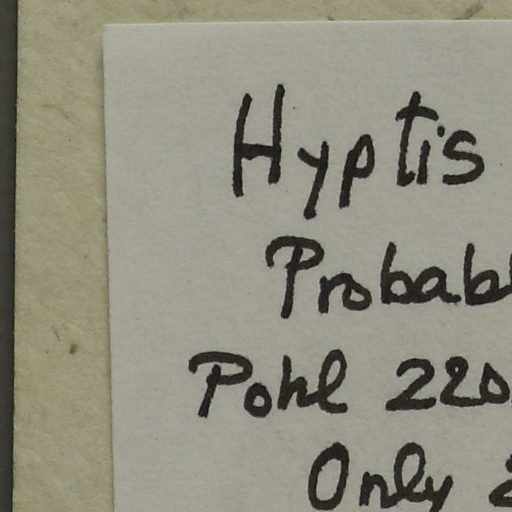 Hyptis
Probab
Pohl 220
Only